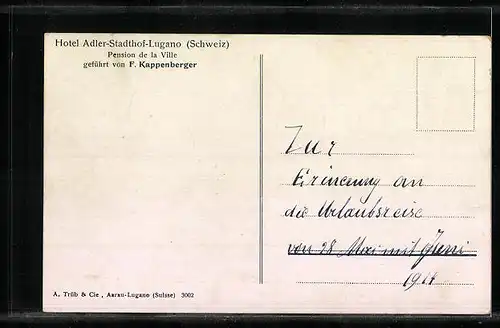 Hotel Adler-Stadthof-Lugano (Schweiz)
Pension de la Ville
geführt von F. Kappenberger
Zur
Erinnerung an
die Urlaubsreise
von 28 Mai mit Juni
1914
A. Trüb & Cie, Aarau-Lugano (Suisse) 3002